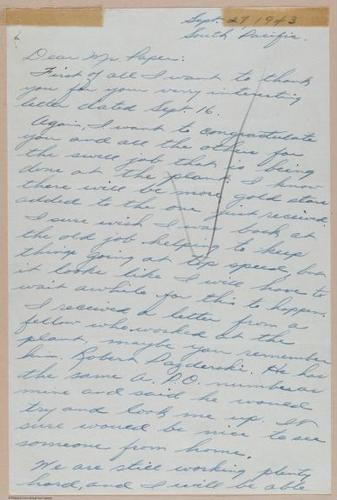 Sept. 27 1943
South Pacific.
Dear Mr. Paper:
First of all I want to thank
you for your very interesting
letter dated Sept. 16.
Again, I want to congratulate
you and all the others for
the swell job that is being
done at the plant. I know
there will be more gold stars
added to the one just received.
I sure wish I was back at
the old job helping to keep
things going at top speed, but
it looks like I will have to
wait awhile for this to happen.
I received a letter from a
fellow who worked at the
plant, maybe you remember
him. Robert He has
the same A.P.O. number as
mine and said he would
try and look me up. It
sure would be nice to see
someone from home.
We are still working plenty
hard, and I will be able